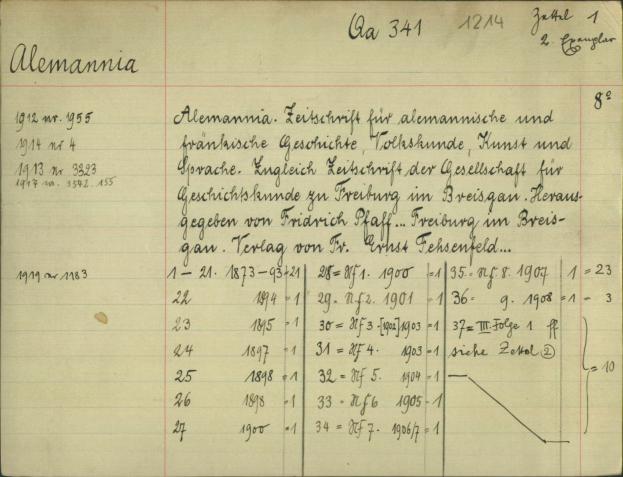 Qa 341 1214 Zettel 1
2. Exemplar
Alemannia
8°
1912 nr. 1955
1914 nr 4
1913 nr 3323
1917 nr. 3542. 155
1919 nr 1183
Alemannia. Zeitschrift für alemannische und
fränkische Geschichte, Volkskunde, Kunst und
Sprache. Zugleich Zeitschrift der Gesellschaft für
Geschichtskunde zu Freiburg im Breisgau. Heraus-
gegeben von Fridrich Pfaff... Freiburg im Breis-
gau. Verlag von Fr. Ernst Fehsenfeld...
1 - 21. 1873-93=21 28 = Nf 1. 1900 =1 35. = Nf. 8. 1907 1 = 23
22 1894 =1 29. = Nf 2. 1901 =1 36 = 9. 1908 =1 = 3
23 1895 =1 30 = Nf 3 - [1902] 1903 =1 37 = III. Folge 1 ff
24 1897 =1 31 = Nf 4. 1903 =1 siehe Zettel 2
25 1898 =1 32 = Nf 5. 1904 =1 = 10
26 1898 =1 33 = Nf 6 1905 =1
27 1900 =1 34 = Nf 7. 1906/7 =1